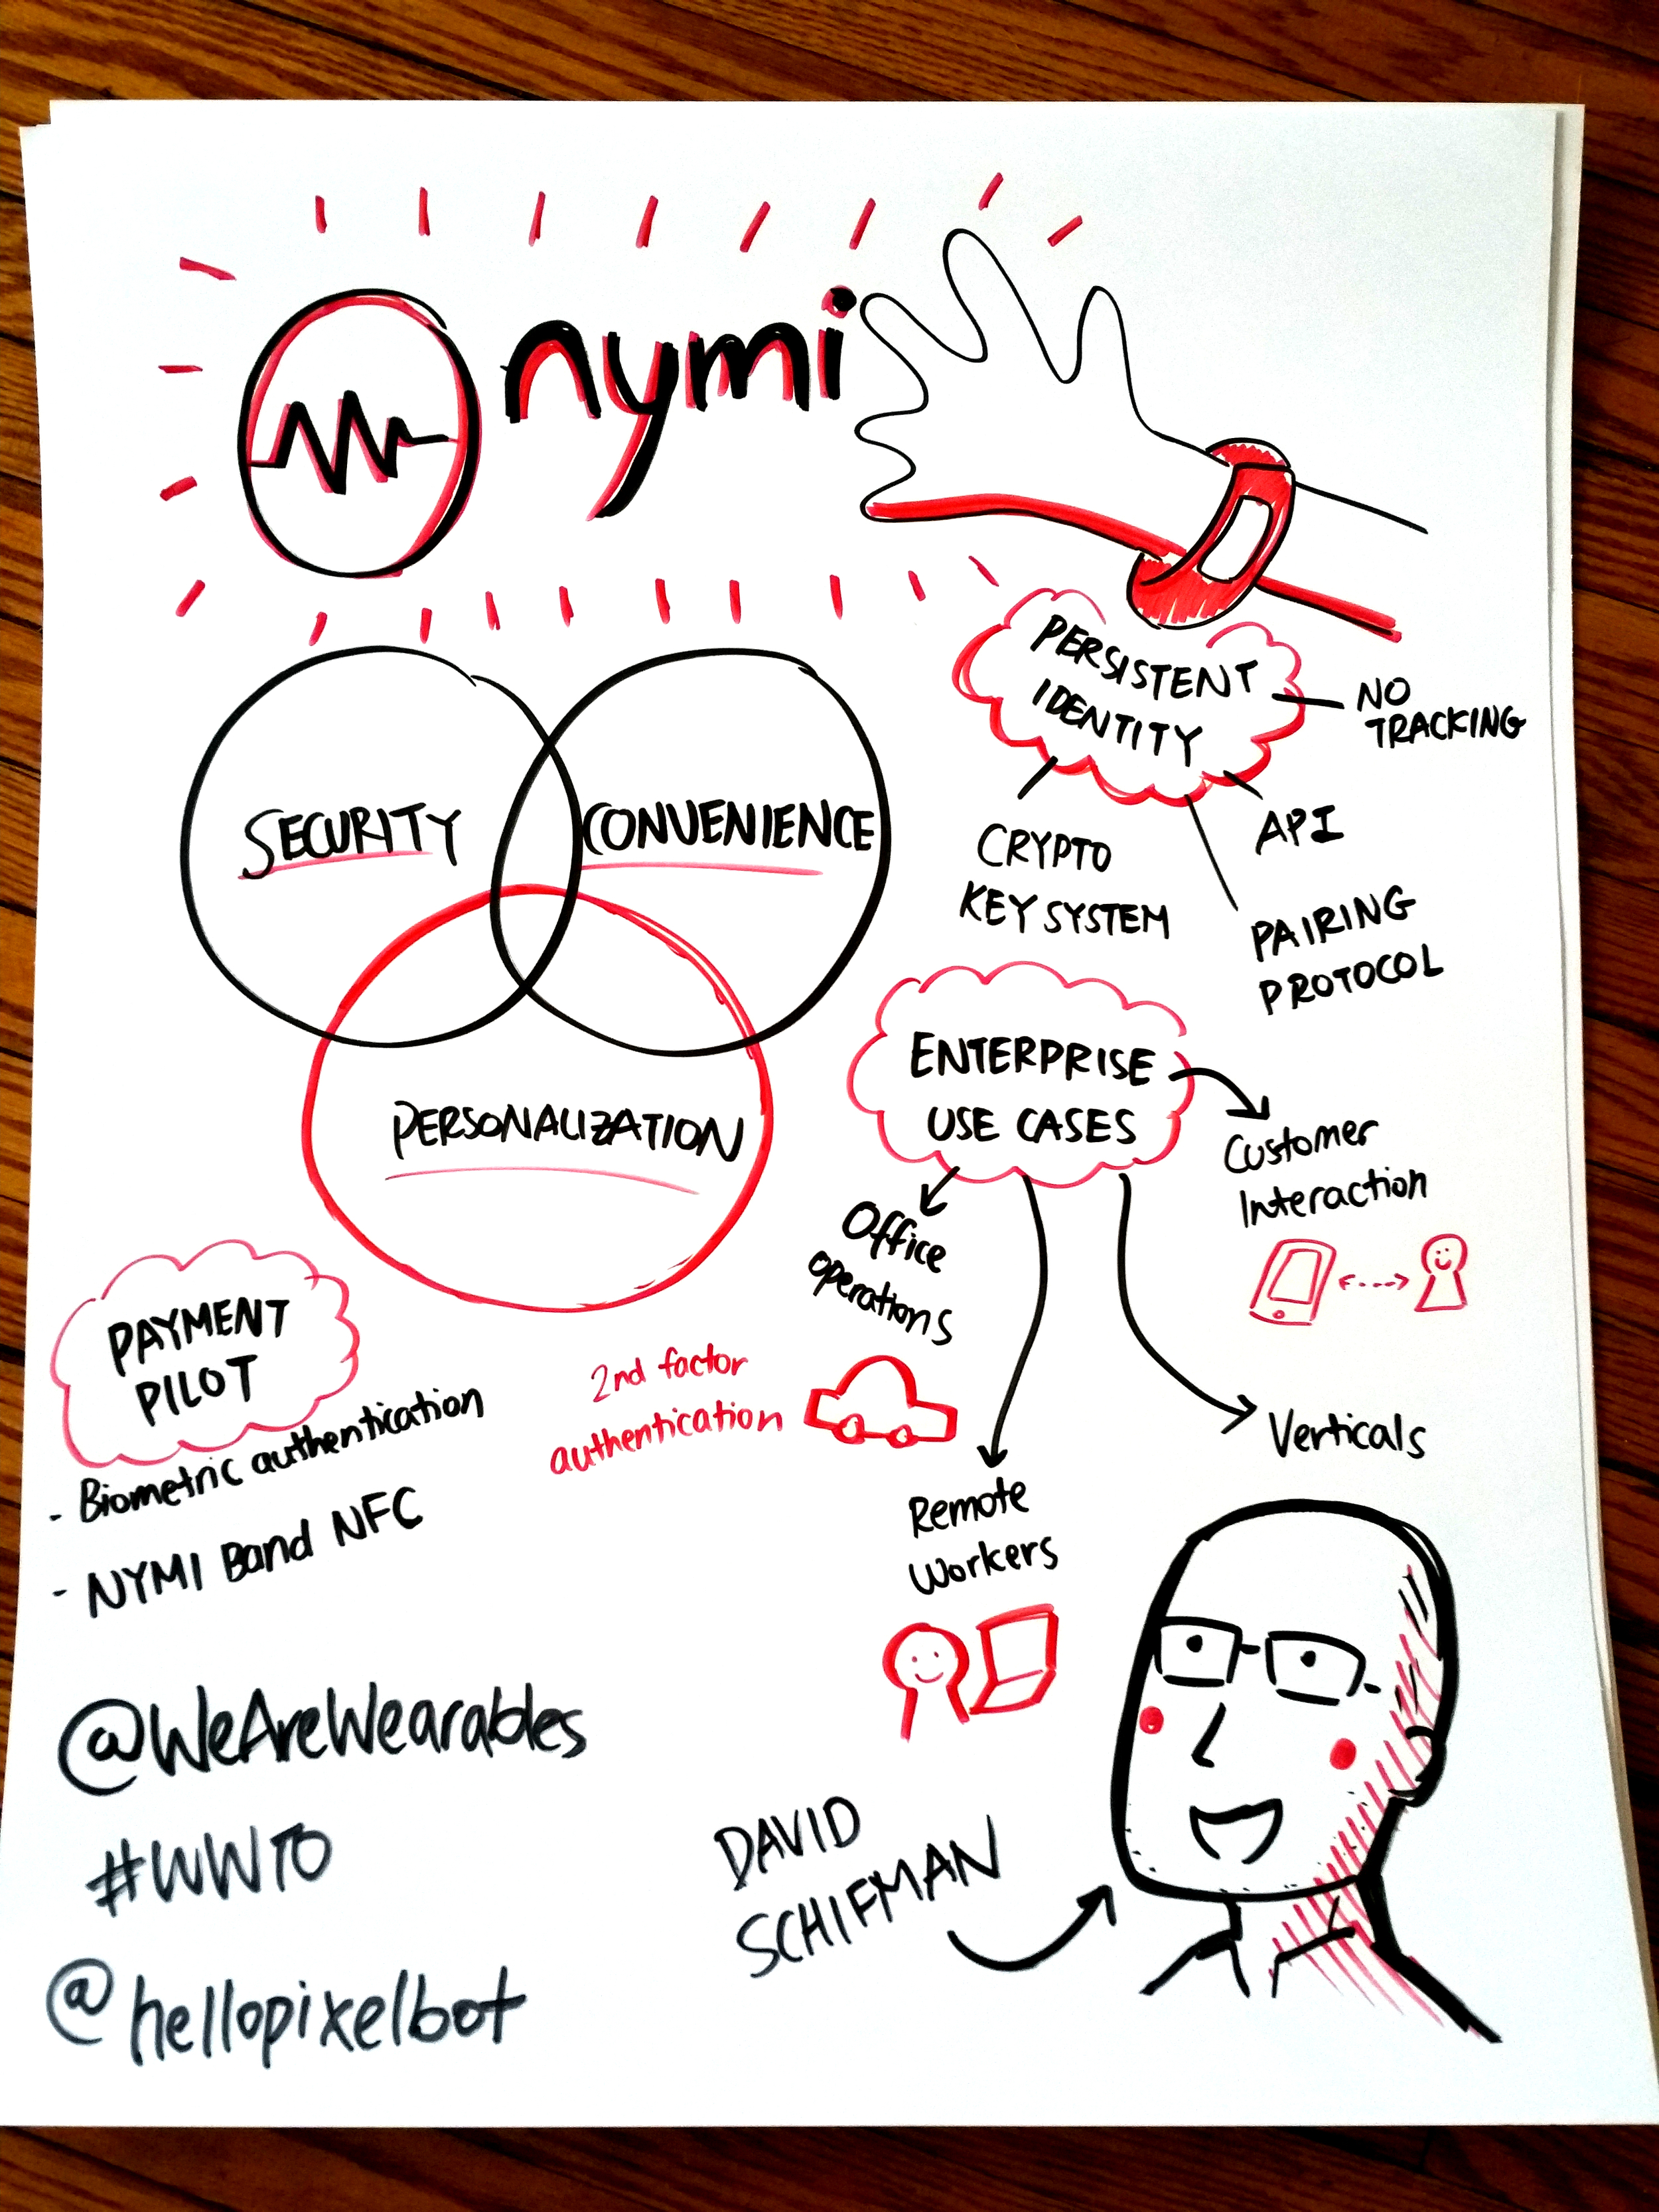 nymi
PERSISTENT
IDENTITY
NO
TRACKING
API
CRYPTO
KEY SYSTEM
PAIRING
PROTOCOL
SECURITY
CONVENIENCE
PERSONALIZATION
ENTERPRISE
USE CASES
Customer
Interaction
Office
operations
Verticals
Remote
Workers
PAYMENT
PILOT
- Biometric authentication
- NYMI Band NFC
2nd factor
authentication
@WeAreWearables
#WWTO
@hellopixelbot
DAVID
SCHIFMAN